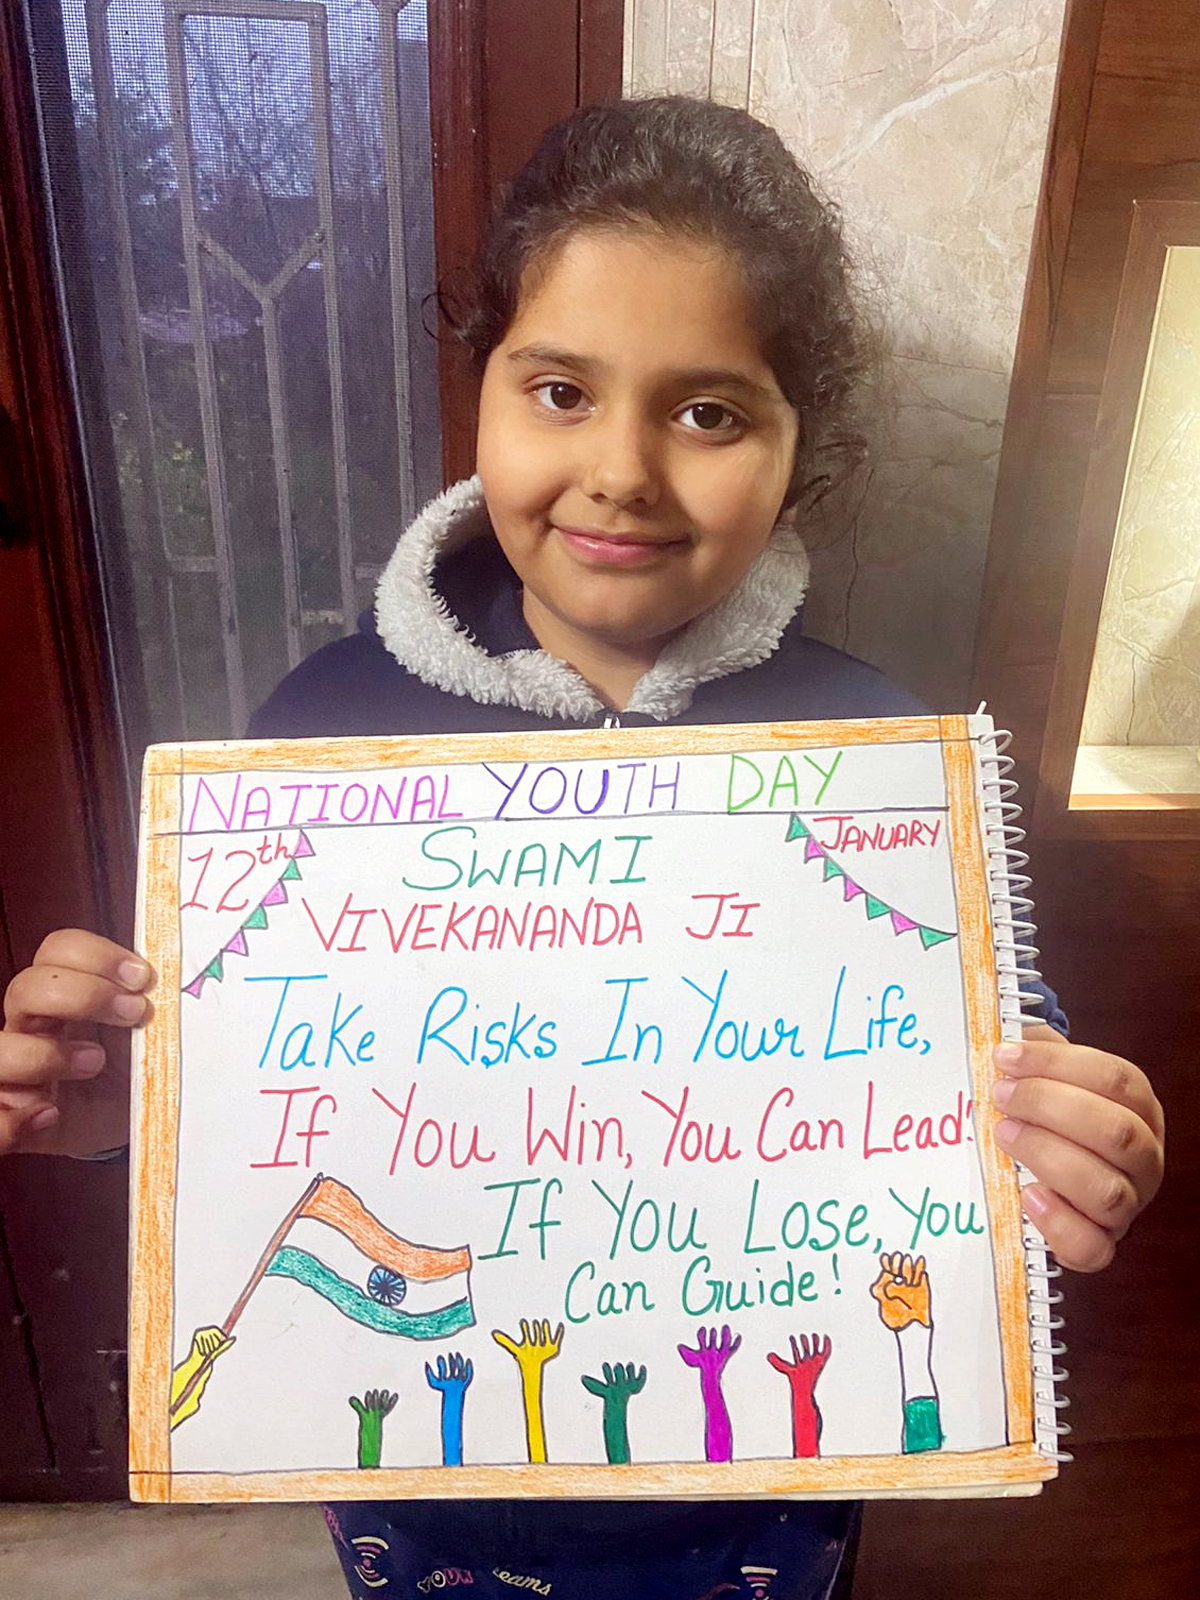 NATIONAL YOUTH DAY
12th
JANUARY
SWAMI
VIVEKANANDA JI
Take Risks In Your Life,
If You Win, You Can Lead!
If You Lose, You
Can Guide!
YOUR